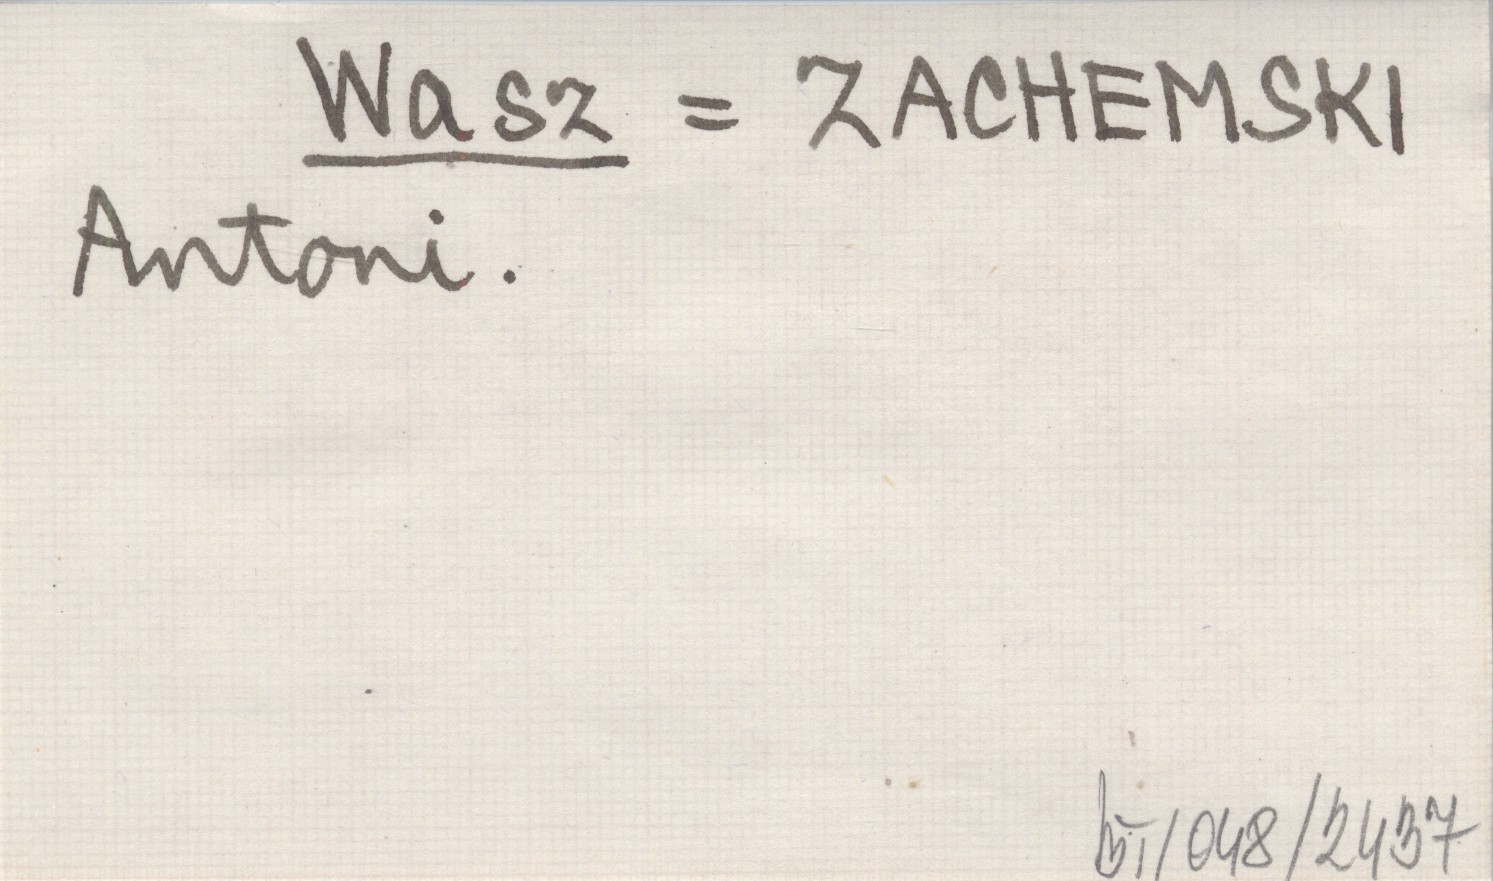 Wasz = ZACHEMSKI
Antoni.
/048/2437